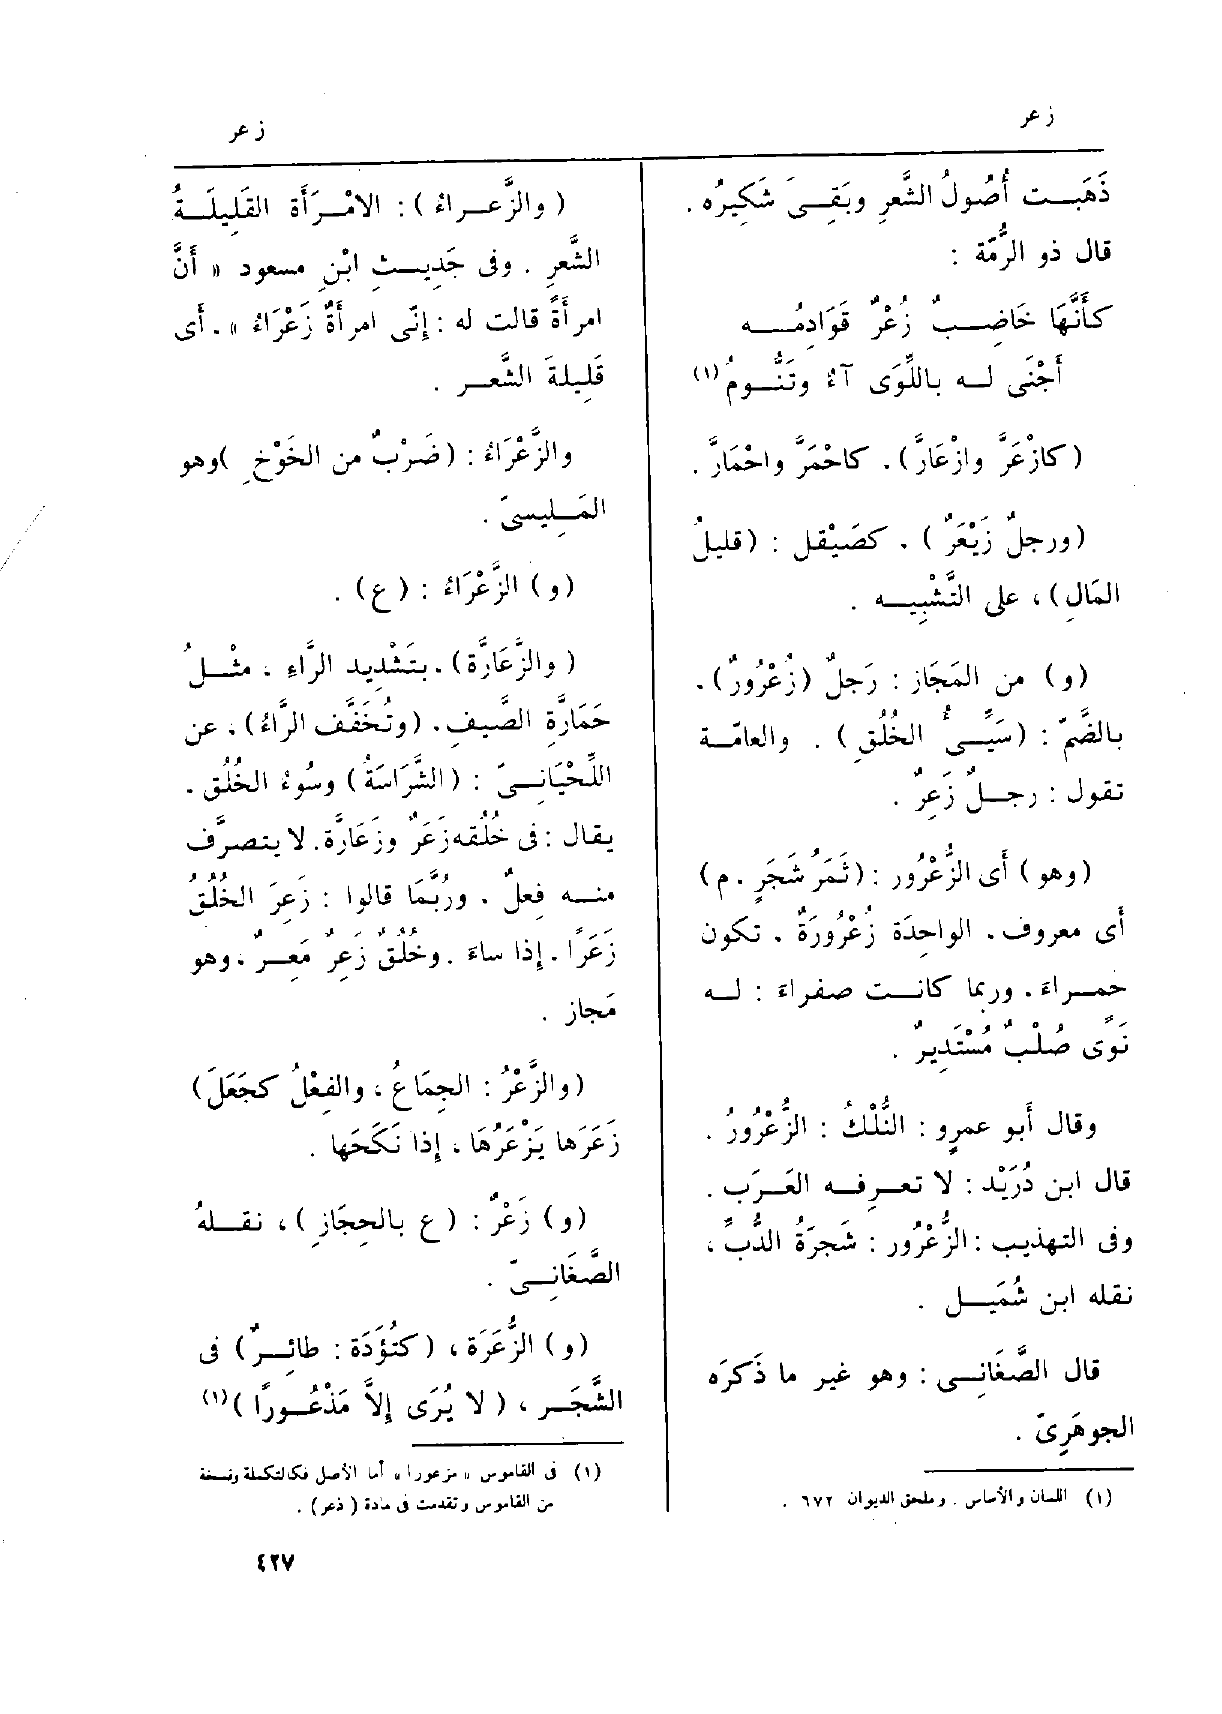 زعر
زعر
ذَهَبت أُصُولُ الشَّعرِ وبَقِىَ شَكِيرُه .
قال ذو الرُّمّة :
كأَنَّها خَاضِبٌ زُعْرٌ قَوَادِمُه
أَجْنَى له باللِّوَى آءٌ وتَنُّومُ (١)
(كازْعَرَّ وازْعَارَّ) . كاحْمَرَّ واحْمَارَّ .
(ورجلٌ زَيْعَرٌ) . كصَيْقل : (قليلُ
المَالِ)، على التَّشْبِيه .
(و) من المَجَاز : رَجلٌ (زُعْرُورٌ) .
بالضَّمّ : (سَيِّىءُ الخُلُقِ) . والعامّة
تقول : رجلٌ زَعِرٌ .
(وهو) أَى الزُّعْرُور : (ثَمَرُ شَجَرٍ . م)
أَى معروف . الواحِدَة زُعْرُورَةٌ . تكون
حمراءَ . وربما كانت صفراءَ : له
نَوًى صُلْبٌ مُسْتَدِيرٌ .
وقال أَبو عمرٍو : النُّلْكُ : الزُّعْرُورُ .
قال ابن دُرَيْد : لا تعرفه العَرَب .
وفى التهذيب : الزُّعْرُور : شَجرَةُ الدُّبِّ ،
نقله ابن شُمَيل .
قال الصَّغَانِى : وهو غير ما ذَكَرَه
الجوهَرِىّ .
(١) اللسان والأساس . وملحق الديوان ٦٧٢ .
(والزَّعراءُ) : الامْرَأَة القَلِيلَةُ
الشَّعرِ . وفى حَدِيثِ ابْنِ مسعود « أَنَّ
امرأَةً قالت له : إِنّى امرأَةٌ زَعْرَاءُ » . أَى
قَلِيلةَ الشَّعر .
والزَّعْرَاءُ : (ضَرْبٌ من الخَوْخِ )وهو
المَلِيسىّ .
(و) الزَّعْرَاءُ : (ع) .
( والزَّعَارَّة) . بتَشْدِيد الرَّاءِ ، مثْلُ
حَمَارَّةِ الصَّيف. (وتُخَفَّف الرَّاءُ) ، عن
اللِّحْيَانِىّ : (الشَّرَاسَةُ) وسُوءُ الخُلُق .
يقال : فى خُلُقه زَعَرٌ وزَعَارَّة . لا يتصرَّف
منه فِعلٌ . ورُبَّمَا قالوا : زَعِرَ الخُلُقُ
زَعَرًا . إِذا ساءَ . وخُلُقٌ زَعِر مَعِرٌ . وهو
مَجاز .
(والزَّعْرُ : الجِمَاعُ ، والفِعْلُ كجَعَلَ)
زَعَرَها يَزْعَرُهَا ، إِذا نَكَحَها .
(و) زَعْرٌ : (ع بالحِجَازِ) ، نقلهُ
الصَّغَانِىّ .
(و) الزُّعَرَة ، (كتُؤَدَة : طائِرٌ) فى
الشَّجَر ، ( لا يُرَى إِلاَّ مَذْعُورًا )(١)
(١) فى القاموس « مزعورا » أما الأصل فكالتكملة ونسخة
من القاموس وتقدمت فى مادة ( ذعر) .
٤٢٧